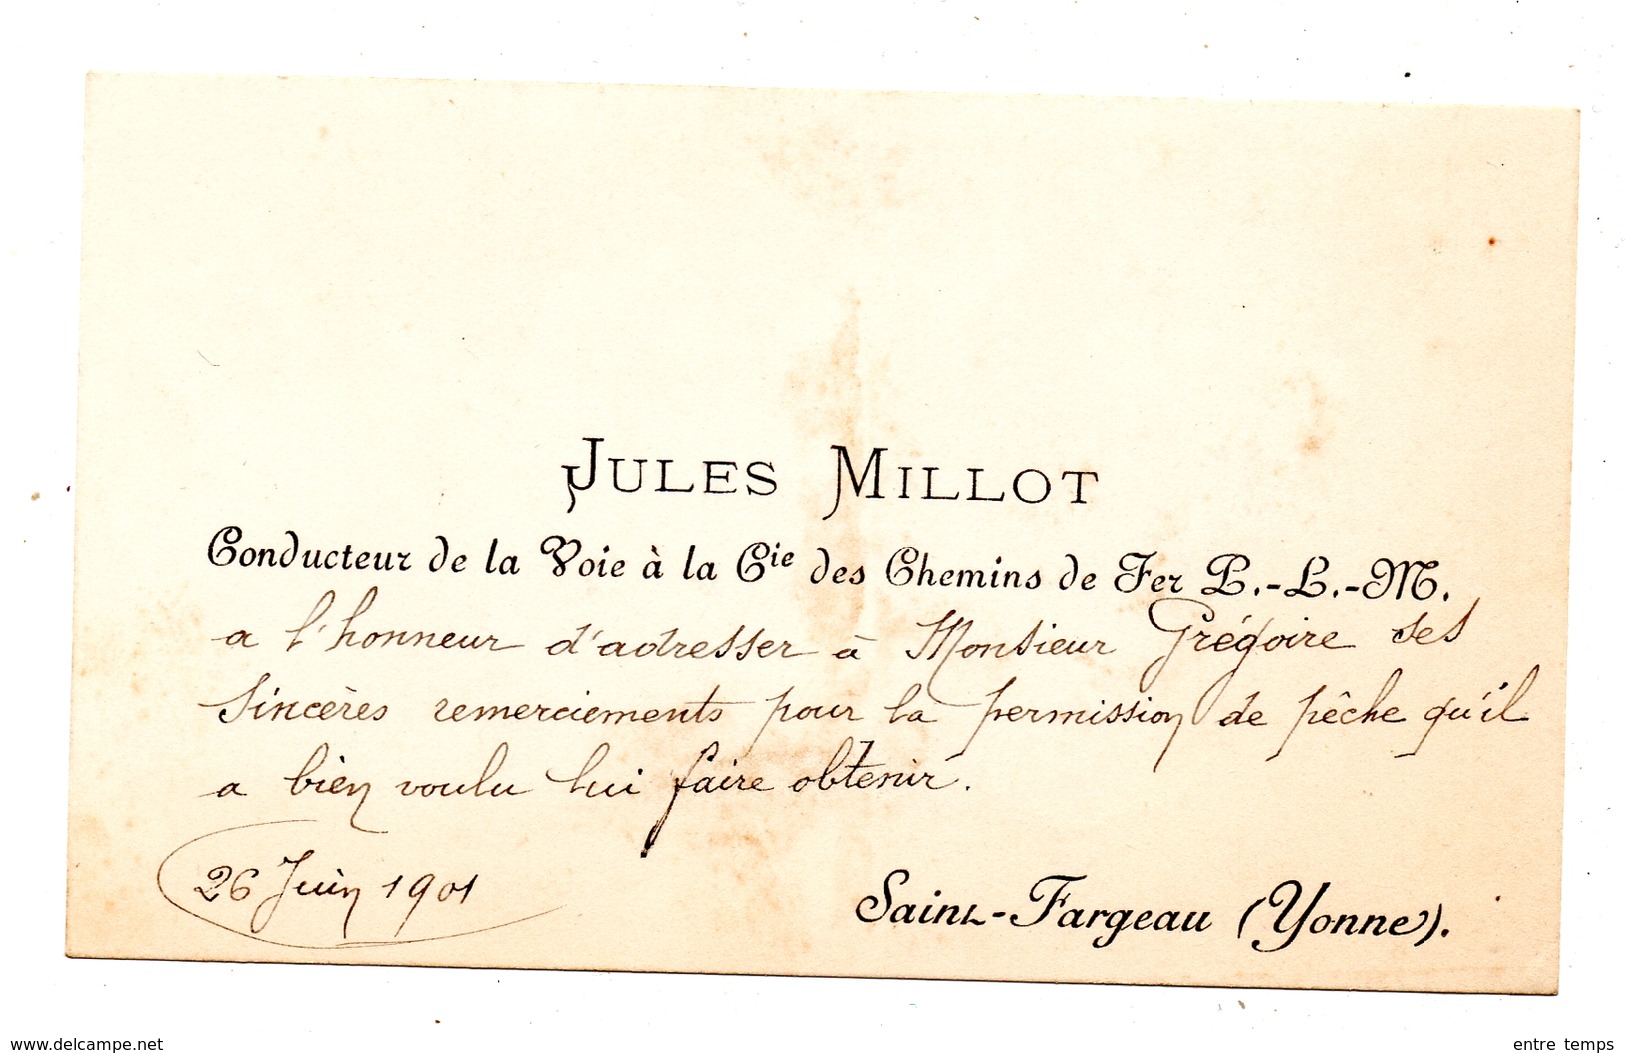 JULES MILLOT
Conducteur de la Voie à la Cie des Chemins de Fer P.-L.-M.
a l'honneur d'adresser à Monsieur Grégoire ses
sincères remerciements pour la permission de pêche qu'il
a bien voulu lui faire obtenir.
26 Juin 1901
Saint-Fargeau (Yonne).
www.delcampe.net
entre temps